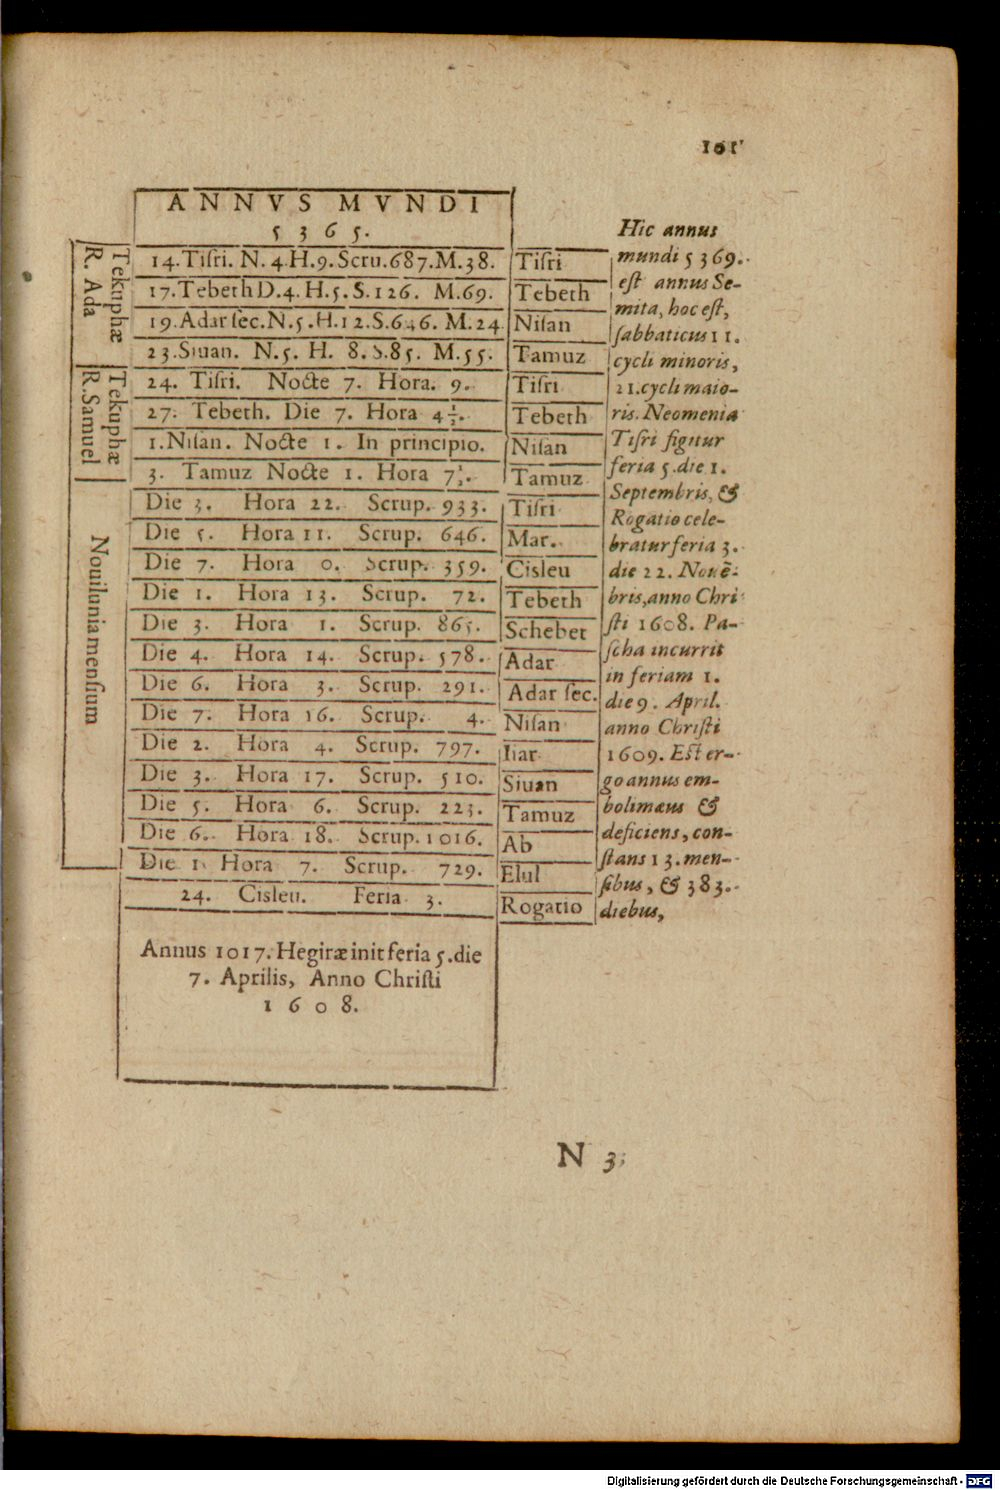 101
ANNVS MVNDI
5365.
Tekuphæ
R. Ada
14.Tiſri. N. 4.H.9.Scru.687.M.38. Tiſri
17.Tebeth D.4. H.5. S.126. M.69. Tebeth
19.Adar ſec.N.5.H.12.S.646. M.24 Niſan
23.Siuan. N.5. H. 8. S.85. M.55. Tamuz
Tekuphæ
R.Samuel
24. Tiſri. Nocte 7. Hora. 9. Tiſri
27. Tebeth. Die 7. Hora 4½. Tebeth
1.Niſan. Nocte 1. In principio. Niſan
3. Tamuz Nocte 1. Hora 7½. Tamuz
Nouilunia menſium
Die 3. Hora 22. Scrup. 933. Tiſri
Die 5. Hora 11. Scrup. 646. Mar.
Die 7. Hora 0. Scrup. 359. Cisleu
Die 1. Hora 13. Scrup. 72. Tebeth
Die 3. Hora 1. Scrup. 865. Schebet
Die 4. Hora 14. Scrup. 578. Adar
Die 6. Hora 3. Scrup. 291. Adar ſec.
Die 7. Hora 16. Scrup. 4. Niſan
Die 2. Hora 4. Scrup. 797. Iiar
Die 3. Hora 17. Scrup. 510. Siuan
Die 5. Hora 6. Scrup. 223. Tamuz
Die 6. Hora 18. Scrup. 1016. Ab
Die 1 Hora 7. Scrup. 729. Elul
24. Cisleu. Feria 3. Rogatio
Annus 1017. Hegiræ init feria 5. die
7. Aprilis, Anno Chriſti
1608.
Hic annus
mundi 5369.
eſt annus Se-
mita, hoc eſt,
ſabbaticus 11.
cycli minoris,
21.cycli maio-
ris. Neomenia
Tiſri figitur
feria 5.die 1.
Septembris, &
Rogatio cele-
bratur feria 3.
die 22. Nouẽ-
bris,anno Chri
ſti 1608. Pa-
ſcha incurrit
in feriam 1.
die 9. April.
anno Chriſti
1609. Eſt er-
go annus em-
bolimæus &
deficiens, con-
ſtans 13. men-
ſibus, & 383.
diebus,
N 3
Digitalisierung gefördert durch die Deutsche Forschungsgemeinschaft - DFG